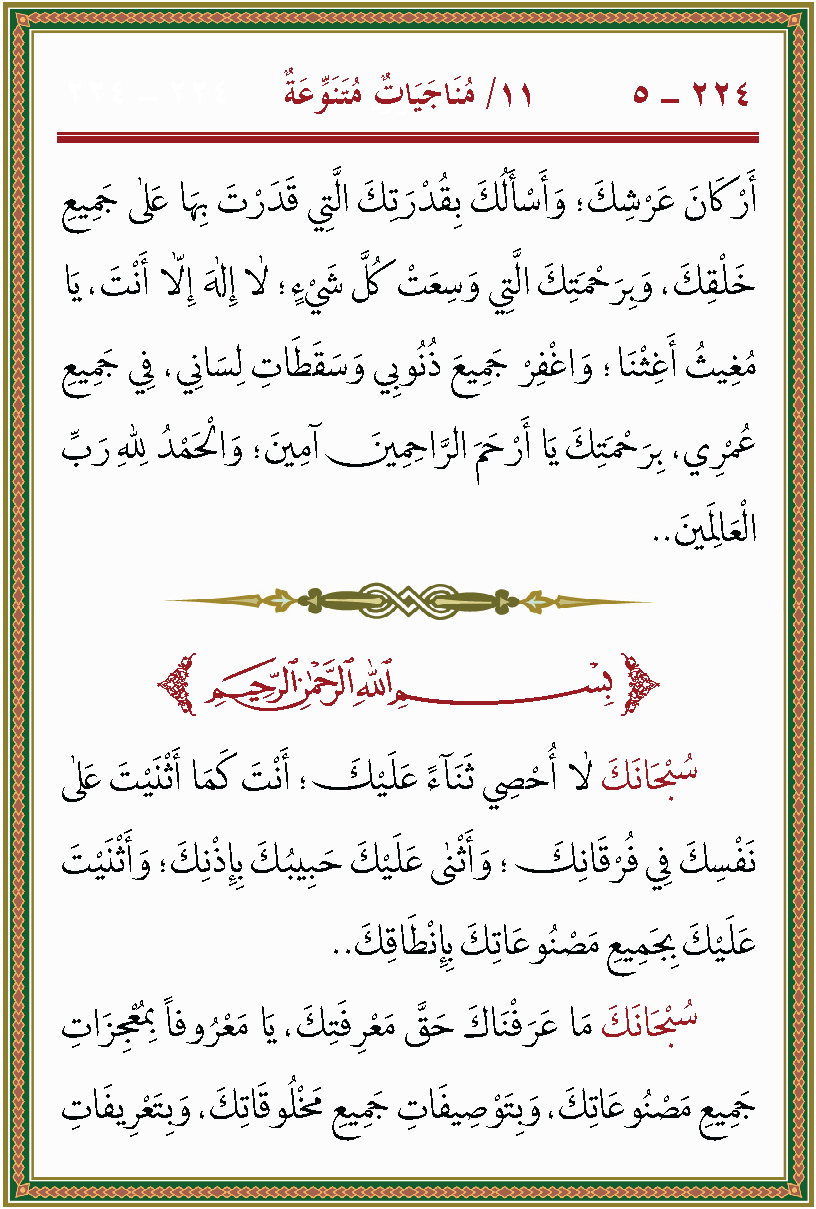 ٢٢٤ – ٥ ١١/ مُنَاجَيَاتٌ مُتَنَوِّعَةٌ
أَرْكَانَ عَرْشِكَ؛ وَأَسْأَلُكَ بِقُدْرَتِكَ الَّتِي قَدَرْتَ بِهَا عَلٰى جَمِيعِ
خَلْقِكَ، وَبِرَحْمَتِكَ الَّتِي وَسِعَتْ كُلَّ شَيْءٍ؛ لٰا إِلٰهَ إِلّٰا أَنْتَ، يَا
مُغِيثُ أَغِثْنَا؛ وَاغْفِرْ جَمِيعَ ذُنُوبِي وَسَقَطَاتِ لِسَانِي، فِي جَمِيعِ
عُمْرِي، بِرَحْمَتِكَ يَا أَرْحَمَ الرَّاحِمِينَ آمِينَ؛ وَالْحَمْدُ لِلّٰهِ رَبِّ
الْعَالَمِينَ..
بِسْمِ اللّٰهِ الرَّحْمٰنِ الرَّحِيمِ
سُبْحَانَكَ لٰا أُحْصِي ثَنَآءً عَلَيْكَ؛ أَنْتَ كَمَا أَثْنَيْتَ عَلٰى
نَفْسِكَ فِي فُرْقَانِكَ؛ وَأَثْنٰى عَلَيْكَ حَبِيبُكَ بِإِذْنِكَ؛ وَأَثْنَيْتَ
عَلَيْكَ بِجَمِيعِ مَصْنُوعَاتِكَ بِإِنْطَاقِكَ..
سُبْحَانَكَ مَا عَرَفْنَاكَ حَقَّ مَعْرِفَتِكَ، يَا مَعْرُوفاً بِمُعْجِزَاتِ
جَمِيعِ مَصْنُوعَاتِكَ، وَبِتَوْصِيفَاتِ جَمِيعِ مَخْلُوقَاتِكَ، وَبِتَعْرِيفَاتِ